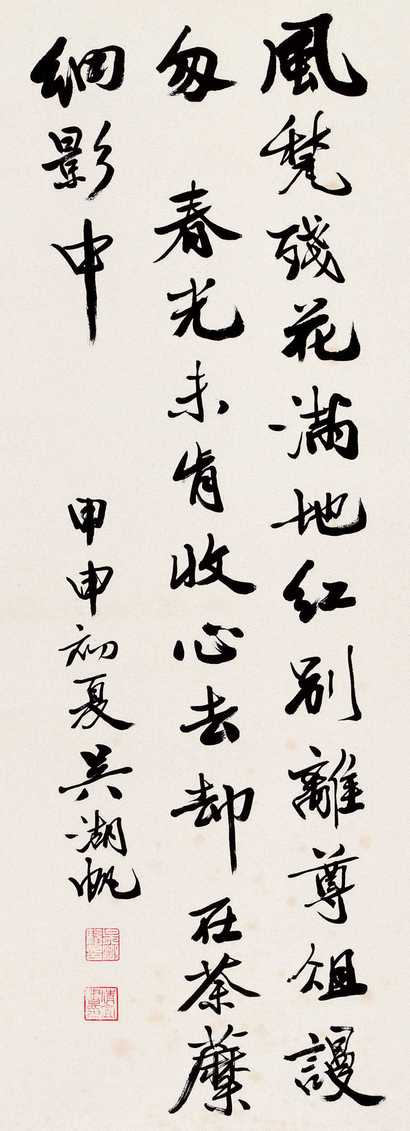 風甃殘花滿地紅別離尊俎謾
匆 春光未肯收心去却在荼蘼
細影中
甲申初夏吳湖帆